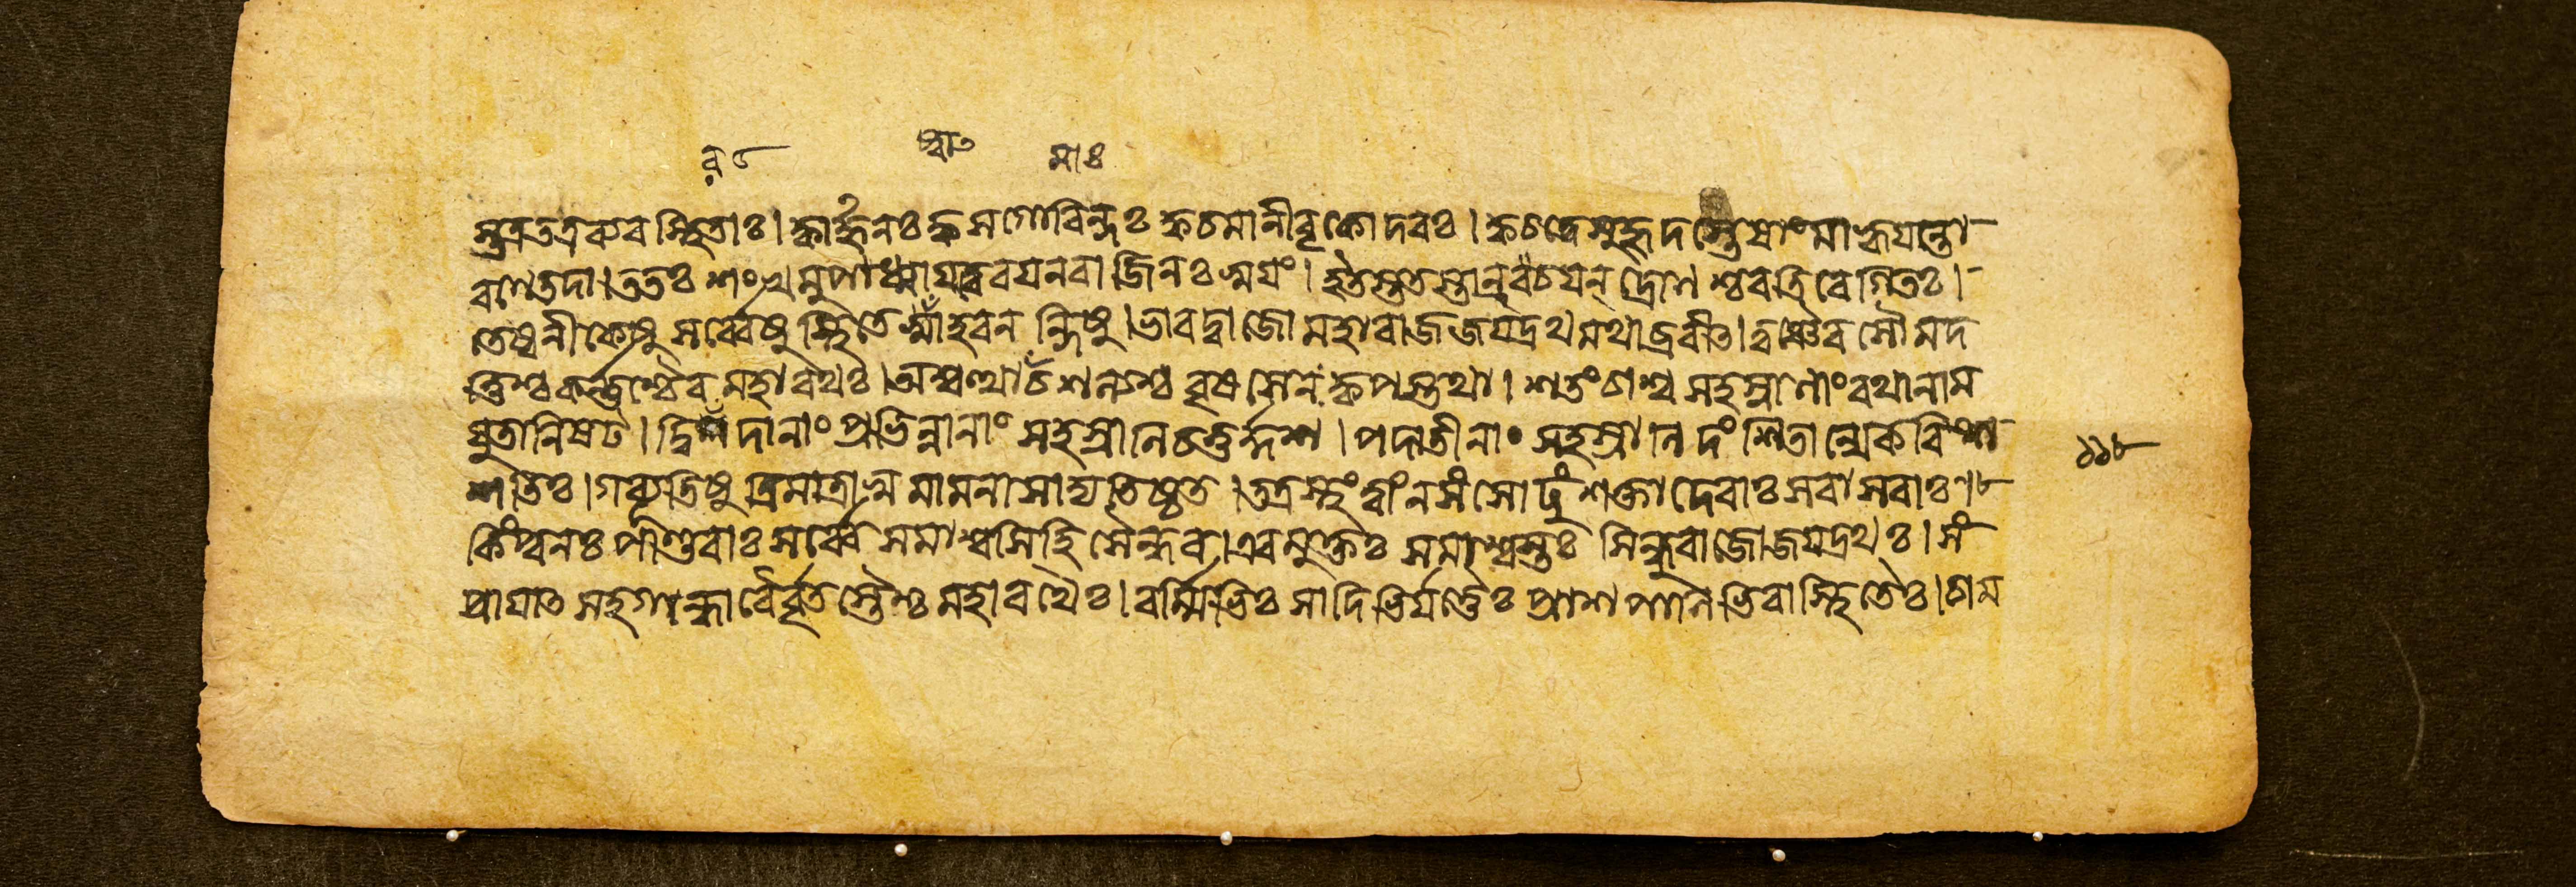 র ৮ ষ্বা৩ মাঃ
স্তত্র তত্র ব্যবস্থিতাঃ । ক্বার্জ্জুনঃ ক্ব স গোবিন্দঃ ক্ব চ মানী বৃকোদরঃ । ক্ব চ তে সুহৃদস্তেষাং মাহ্বযন্তো
রণে তদা । ততঃ শংখমুপাধ্মায ত্বরযন বাজিনঃ স্বযং । ইতস্ততস্তান্ রচযন্ দ্রোণশ্চরতি বেগিতঃ ।
তেষ্বনীকেষু সর্ব্বেষু স্থিতেষ্বাহবনন্দিষু । ভারদ্বাজো মহারাজ জযদ্রথমথাব্রবীৎ । ত্বঞ্চৈব সৌমদ
ত্তিশ্চ কর্ণ্ণশ্চৈব মহারথঃ । অশ্বত্থামা চ শল্যশ্চ বৃষসেনঃ কৃপস্তথা । শতং চাশ্বসহস্রাণাং রথানাম
যুতানি ষট । দ্বিরদানাং প্রভিন্নানাং সহস্রানি চতুর্দ্দশ । পদাতীনাং সহস্রানি দংশিতান্যেকবিংশ
শতিঃ । গব্যূতিষু ত্রিমাত্রাসু মামনাসাদ্য তিষ্ঠত । তত্রস্থং ত্বাং ন সংসোঢুং শক্তা দেবাঃ সবাসবাঃ । ৮
কিং পুনঃ পাণ্ডবাঃ সর্ব্বে সমাশ্বসিহি সৈন্ধব । এবমুক্তঃ সমাশ্বস্তঃ সিন্ধুরাজো জযদ্রথঃ । সং
প্রাযাৎ সহ গান্ধারৈর্বৃতস্তৈশ্চ মহারথৈঃ । বর্ম্মিভিঃ সাদিভির্যত্তৈঃ প্রাশপাণিভিরাস্থিতৈঃ । চাম
১১৮